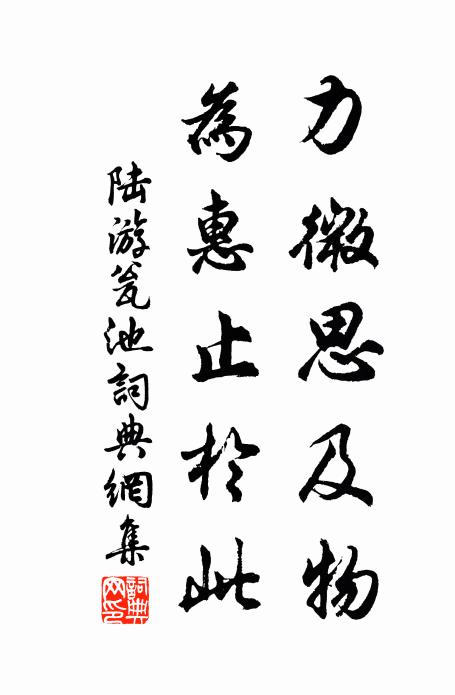 力微思及物
為惠止於此
陸游瓮池詞典網集
詞典網印